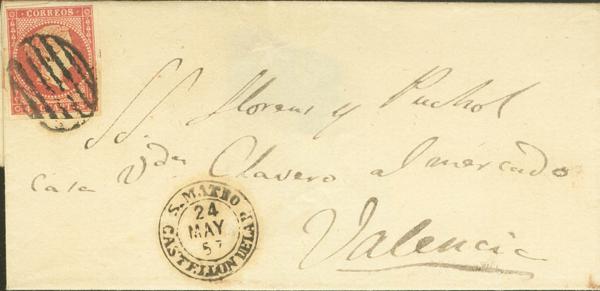 CORREOS
SS. Llorens y Puchol
casa Vda. Clavero al mercado
Valencia
S. MATEO
24
MAY
57
CASTELLON DE LA P.